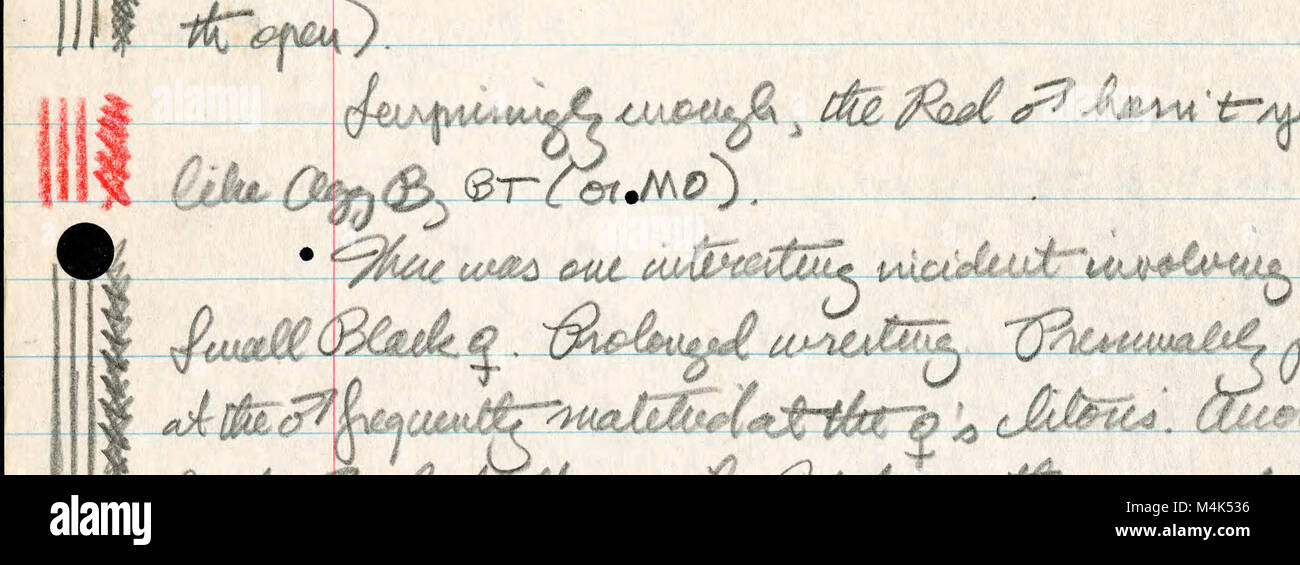 th open).
Surprisingly enough, the Red ♂ hasn't
like Agg B, BT (or MO).
There was one interesting incident involving
Small Black ♀. Prolonged wresting. Presumably
at the ♂ frequently snatched at the ♀'s clitoris.
alamy
alamy
alamy
Image ID: M4K536
www.alamy.com